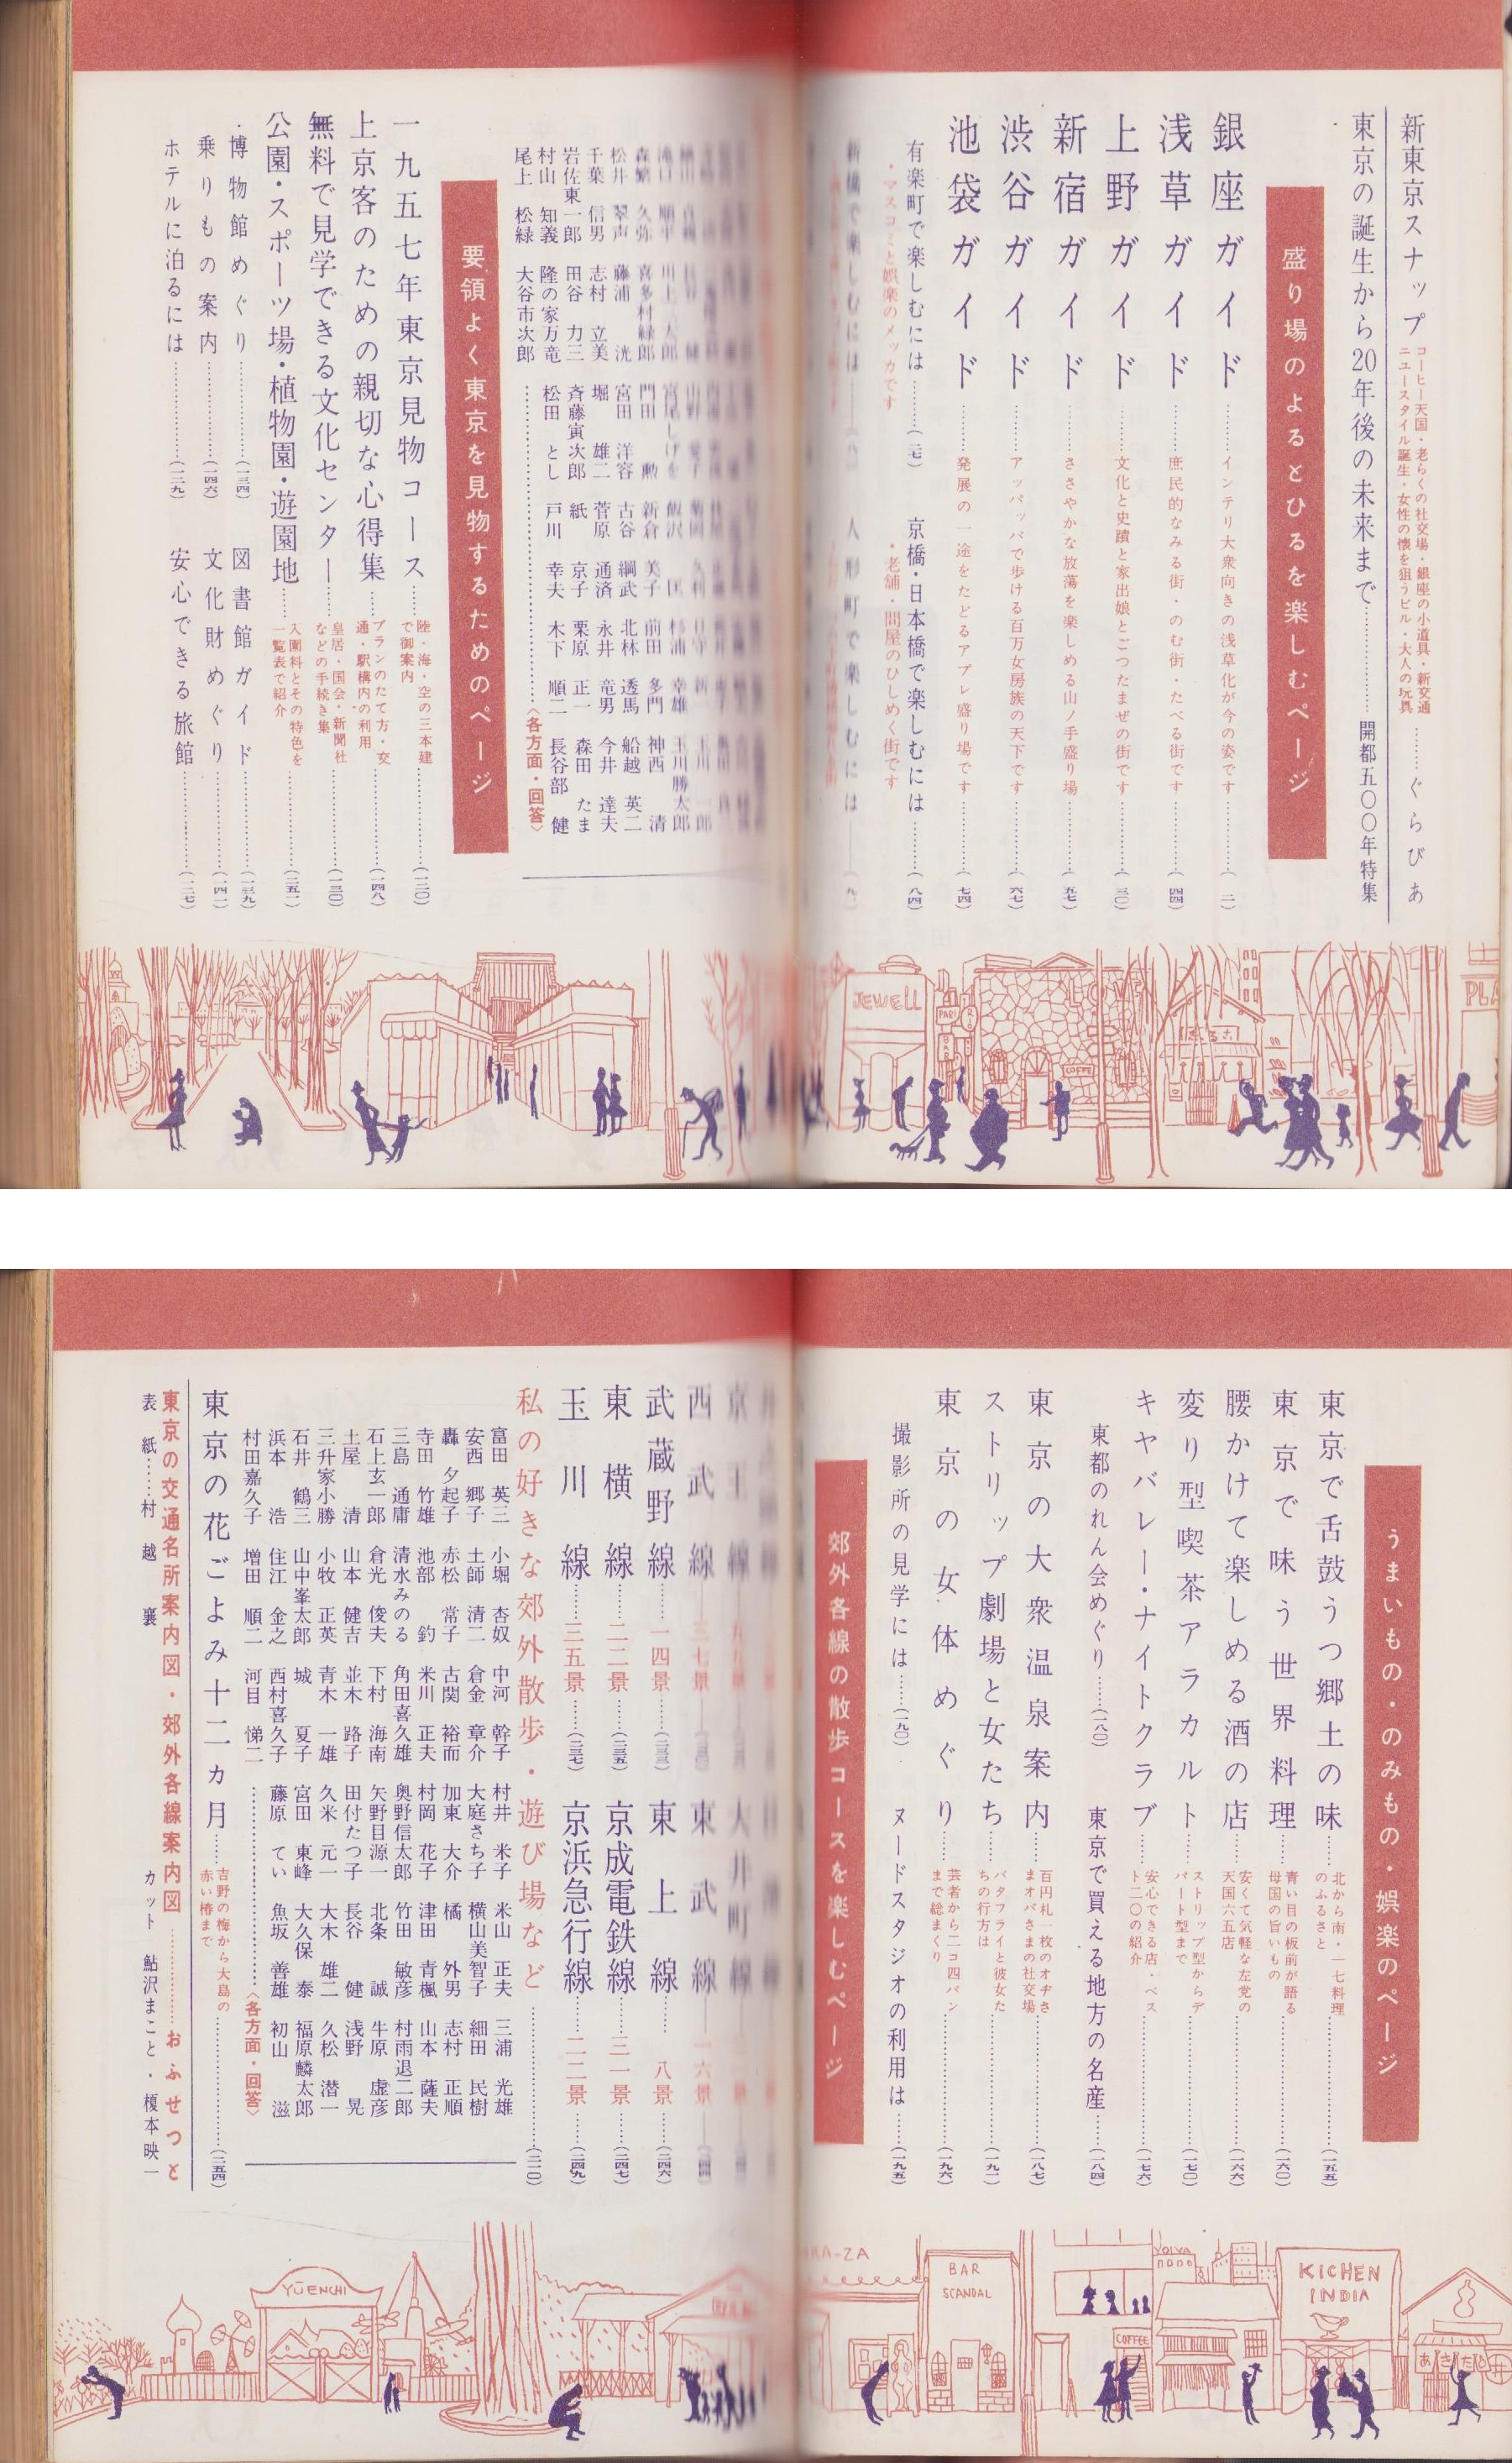 新東京スナップ
コーヒー天国・老らくの社交場・銀座の小道具・新交通
ニュースタイル誕生・女性の懐を狙うビル・大人の玩具
………ぐらびあ
東京の誕生から20年後の未来まで…………開都五〇〇年特集
盛り場のよるとひるを楽しむページ
銀座ガイド………インテリ大衆向きの浅草化が今の姿です………(二)
浅草ガイド………庶民的なみる街・のむ街・たべる街です………(四四)
上野ガイド………文化と史蹟と家出娘とごつたまぜの街です………(三〇)
新宿ガイド………ささやかな放蕩を楽しめる山ノ手盛り場………(五七)
渋谷ガイド………アッパッパで歩ける百万女房族の天下です………(六七)
池袋ガイド………発展の一途をたどるアプレ盛り場です………(七四)
有楽町で楽しむには………(二七)
・マスコミと娯楽のメッカです
京橋・日本橋で楽しむには………(八四)
・老舗・問屋のひしめく街です
新橋で楽しむには
人形町で楽しむには
森繁 久弥 喜多村緑郎 門田 勲 新倉 美子 前田 多門 神西 清
松井 翠声 藤浦 洸 宮田 洋容 古谷 綱武 北林 透馬 船越 英二
千葉 信男 志村 立美 堀 雄二 菅原 通済 永井 竜男 今井 達夫
岩佐東一郎 田谷 力三 斉藤寅次郎 紙 京子 栗原 正一 森田 たま
村山 知義 隆の家万竜 松田 とし 戸川 幸夫 木下 順二 長谷部 健
尾上 松緑 大谷市次郎…………〈各方面・回答〉
要領よく東京を見物するためのページ
一九五七年東京見物コース……陸・海・空の三本建
で御案内………(一二〇)
上京客のための親切な心得集……プランのたて方・交
通・駅構内の利用………(一四八)
無料で見学できる文化センター……皇居・国会・新聞社
などの手続き集………(一三〇)
公園・スポーツ場・植物園・遊園地……入園料とその特色を
一覧表で紹介………(二五一)
・博物館めぐり………(一三四)
図書館ガイド………(一三九)
乗りもの案内………(一四六)
文化財めぐり………(一四一)
ホテルに泊るには………(一二九)
安心できる旅館………(一二七)
JEWELL
PARI
BAR
COFFE
PLA
うまいもの・のみもの・娯楽のページ
東京で舌鼓うつ郷土の味……北から南・一七料理
のふるさと………(一五五)
東京で味う世界料理……青い目の板前が語る
母国の旨いもの………(一六〇)
腰かけて楽しめる酒の店……安くて気軽な左党の
天国六五店………(一六六)
変り型喫茶アラカルト……ストリップ型からデ
パート型まで………(一七〇)
キャバレー・ナイトクラブ……安心できる店・ベス
ト二〇の紹介………(一七六)
東都のれん会めぐり……(一八〇)
東京で買える地方の名産……(一八四)
東京の大衆温泉案内……百円札一枚のオヂさ
まオバさまの社交場………(一八七)
ストリップ劇場と女たち……バタフライと彼女た
ちの行方は………(一九一)
東京の女体めぐり……芸者から二コ四パン
まで総まくり………(一九六)
撮影所の見学には……(一九〇)
ヌードスタジオの利用は……(一九五)
郊外各線の散歩コースを楽しむページ
京王線
大井町線
西武線……三七景
東武線……一六景
武蔵野線……一四景……(二三三)
東上線……八景……(二四六)
東横線……二二景……(二三五)
京成電鉄線……三一景……(二四七)
玉川線……三五景……(二三七)
京浜急行線……二二景……(二四九)
私の好きな郊外散歩・遊び場など…………(二一〇)
富田 英三 小堀 杏奴 中河 幹子 村井 米子 米山 正夫 三浦 光雄
安西 郷子 土師 清二 倉金 章介 大庭さち子 横山美智子 細田 民樹
轟 夕起子 赤松 常子 古関 裕而 加東 大介 橘 外男 志村 正順
寺田 竹雄 池部 釣 米川 正夫 村岡 花子 津田 青楓 山本 薩夫
三島 通庸 清水みのる 角田喜久雄 奥野信太郎 竹田 敏彦 村雨退二郎
石上玄一郎 倉光 俊夫 下村 海南 矢野目源一 北条 誠 牛原 虚彦
土屋 清 山本 健吉 並木 路子 田付たつ子 長谷 健 浅野 晃
三升家小勝 小牧 正英 青木 一雄 久米 元一 大木 雄二 久松 潜一
石井 鶴三 山中峯太郎 城 夏子 宮田 東峰 大久保 泰 福原麟太郎
浜本 浩 住江 金之 西村喜久子 藤原 てい 魚坂 善雄 初山 滋
村田嘉久子 増田 順二 河目 悌二…………〈各方面・回答〉
東京の花ごよみ十二カ月……吉野の梅から大島の
赤い椿まで………(二五四)
東京の交通名所案内図・郊外各線案内図…………おふせつと
表紙……村越 襄
カット 鮎沢まこと・榎本映一
YŪENCHI
KA-ZA
BAR
SCANDAL
COFFEE
KICHEN
INDIA